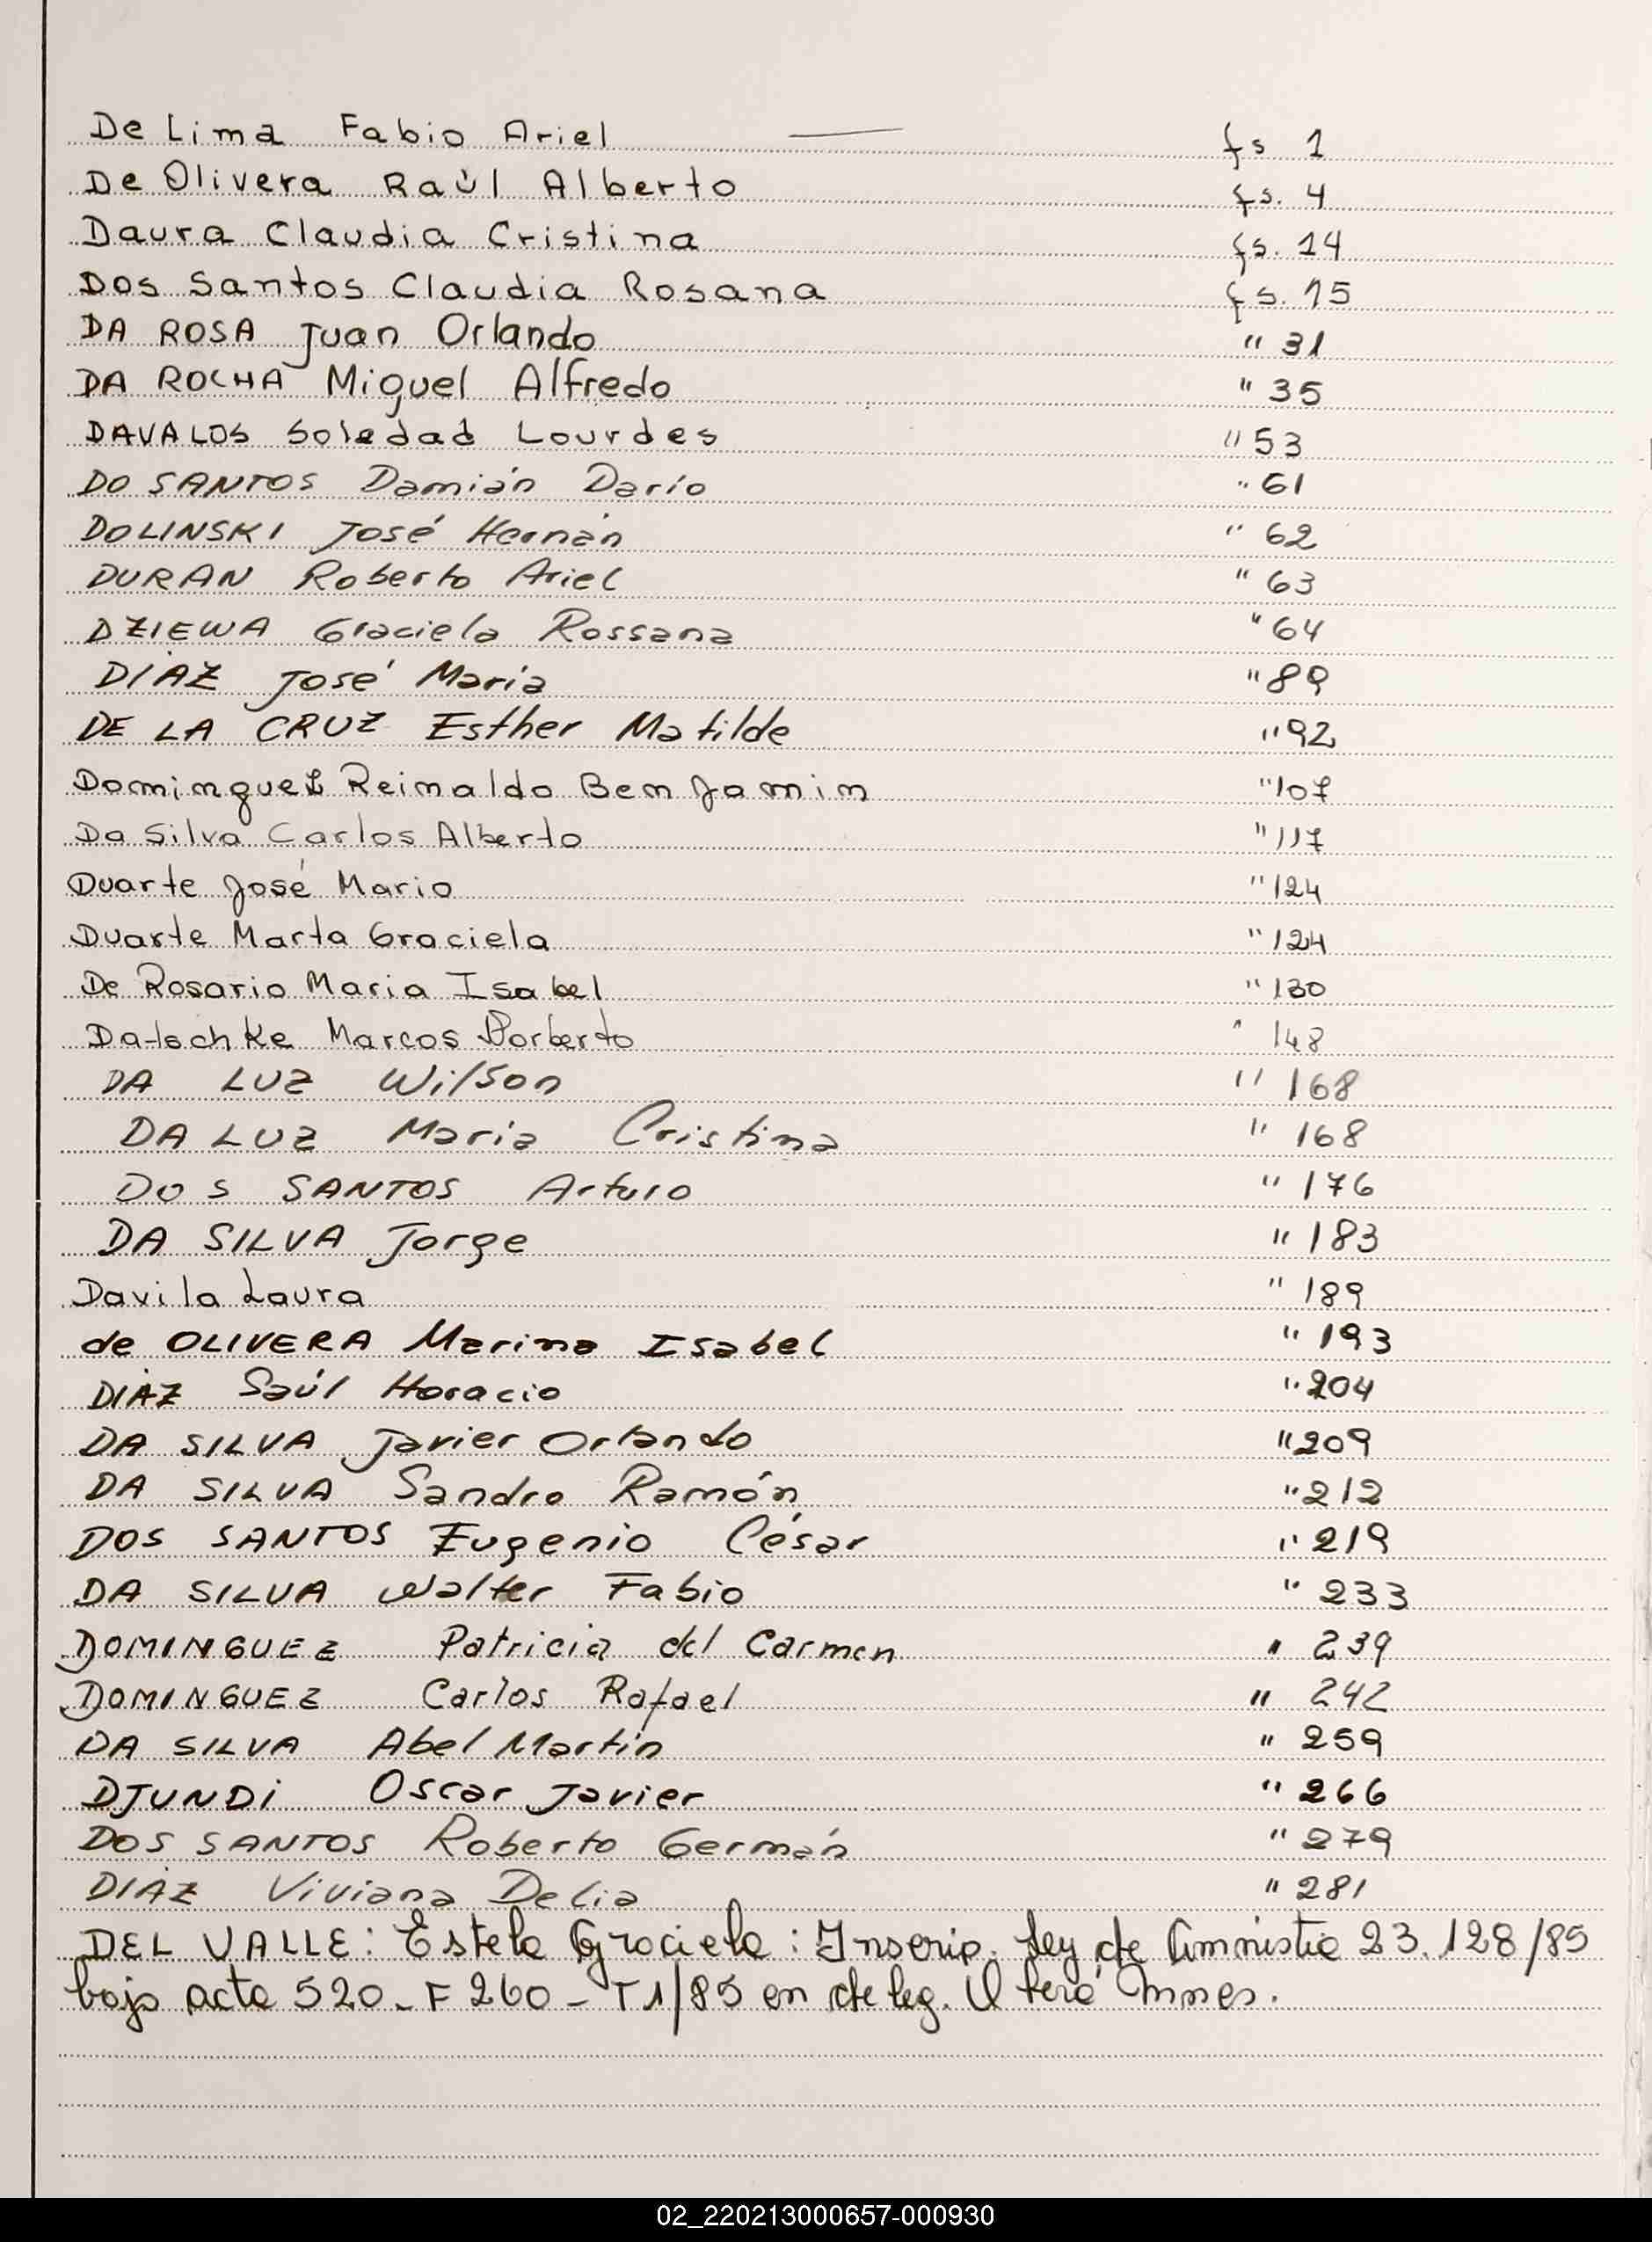 De Lima Fabio Ariel — fs 1
De Olivera Raúl Alberto fs. 4
Daura Claudia Cristina fs. 14
Dos Santos Claudia Rosana fs. 15
DA ROSA Juan Orlando " 31
DA ROCHA Miguel Alfredo " 35
DAVALOS Soledad Lourdes " 53
DO SANTOS Damián Darío " 61
DOLINSKI José Hernán " 62
DURAN Roberto Ariel " 63
DZIEWA Graciela Rossana " 64
DIAZ José Maria " 89
DE LA CRUZ Esther Matilde " 92
Dominguez Reinaldo Benjamin " 107
Da Silva Carlos Alberto " 117
Duarte José Mario " 124
Duarte Marta Graciela " 124
De Rosario Maria Isabel " 130
Marcos Norberto " 148
DA LUZ Wilson " 168
DA LUZ Maria Cristina " 168
DOS SANTOS Arturo " 176
DA SILVA Jorge " 183
Davila Laura " 189
de OLIVERA Marina Isabel " 193
DIAZ Saúl Horacio " 204
DA SILVA Javier Orlando " 209
DA SILVA Sandro Ramón " 212
DOS SANTOS Eugenio César " 219
DA SILVA Walter Fabio " 233
DOMINGUEZ Patricia del Carmen " 239
DOMINGUEZ Carlos Rafael " 242
DA SILVA Abel Martín " 259
DJUNDI Oscar Javier " 266
DOS SANTOS Roberto Germán " 279
DIAZ Viviana Delia " 281
DEL VALLE: Estela Graciela: Inscrip. Ley de Amnistia 23.128/85
bajo acta 520 - F 260 - T1/85 en de leg.
02_220213000657-000930